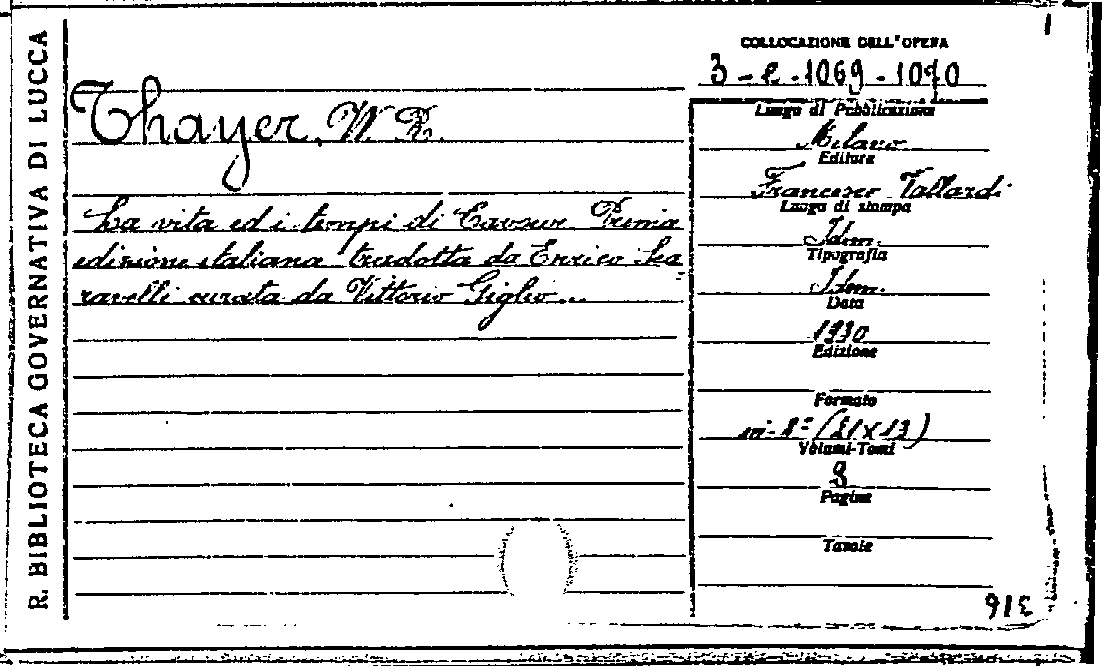 R. BIBLIOTECA GOVERNATIVA DI LUCCA
COLLOCAZIONE DELL'OPERA
3-e-1069-1070
Thayer, W. R.
La vita ed i tempi di Cavour. Prima
edizione italiana tradotta da Enrico Sca-
ravelli curata da Vittorio Giglio...
Luogo di Pubblicazione
Milano
Editore
Francesco Vallardi
Luogo di stampa
Idem.
Tipografia
Idem.
Data
1930
Edizione
Formato
in-8° (21x13)
Volumi-Tomi
Pagine
Tavole